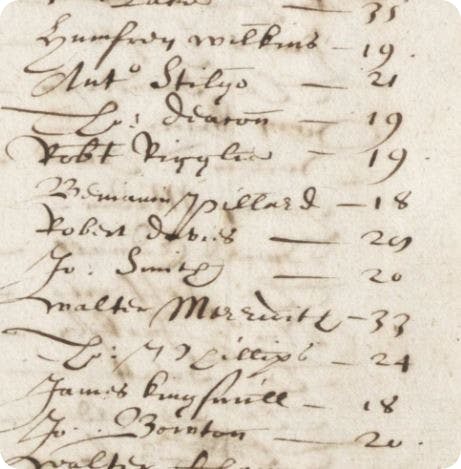 — 35
Humfrey Wilkins — 19.
Anto Stilgo — 21
Tho: Deacon — 19
Robt — 19.
Beniamin Pillard — 18
Robert Davies — 29
Jo: Smith — 20
Walter Merrwith — 33
Tho: Phillips — 24
James Kingsmill — 18
Jo: Bointon — 20.
Walter